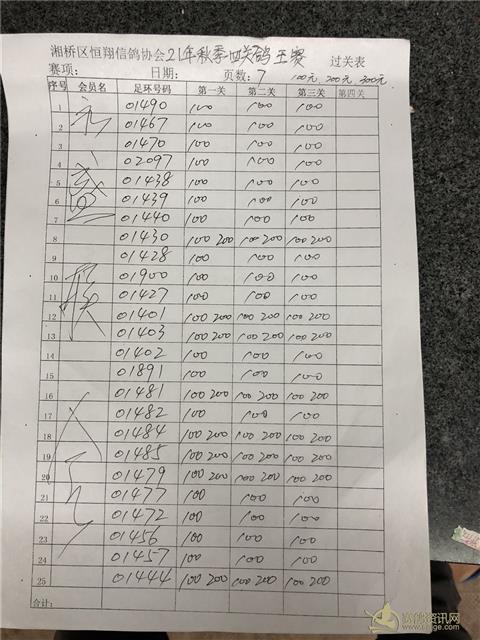 湘桥区恒翔信鸽协会21年秋季四关鸽王赛 过关表
赛项: 日期: 页数:7 100元 200元 300元
序号 会员名 足环号码 第一关 第二关 第三关 第四关
1 01490 100 100 100
2 01467 100 100 100
3 01470 100 100 100
4 02097 100 100 100
5 01438 100 100 100
6 01439 100 100 100
7 01440 100 100 100
8 01430 100 200 100 200 100 200
9 01428 100 100 100
10 01900 100 100 100
11 01427 100 100 100
12 01401 100 200 100 200 100 200
13 01403 100 200 100 200 100 200
14 01402 100 100 100
15 01891 100 100 100
16 01481 100 200 100 200 100 200
17 01482 100 100 100
18 01484 100 200 100 200 100 200
19 01485 100 200 100 200 100 200
20 01479 100 200 100 200 100 200
21 01477 100 100 100
22 01472 100 100 100
23 01456 100 100 100
24 01457 100 100 100
25 01444 100 200 100 200 100 200
合计: